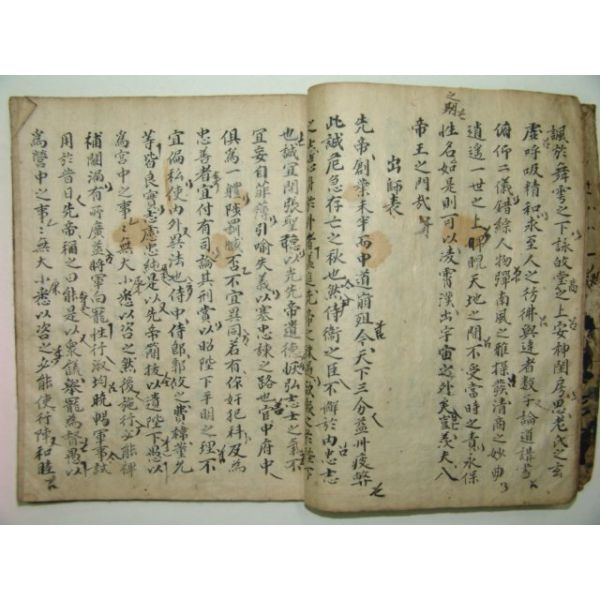 諷於舞雩之下詠歸堂之上安神閨房思老氏之玄
虛呼吸精和求至人之彷彿與達者數子論道講書
俯仰二儀錯綜人物彈南風之雅操發清商之妙曲
逍遙一世之上睥睨天地之間不受當時之責永保
性名如是則可以凌霄漢出宇宙之外矣豈羨夫入
之期
帝王之門哉
出師表
先帝創業未半而中道崩殂今天下三分益州疲弊
此誠危急存亡之秋也然侍衛之臣不懈於內忠志
之士忘身於外者
也誠宜開張聖聽以光先帝遺德恢弘志士之氣不
宜妄自菲薄引喻失義以塞忠諫之路也宮中府中
俱爲一體陟罰臧否不宜異同若有作奸犯科及爲
忠善者宜付有司論其刑賞以昭陛下平明之理不
宜偏私使內外異法也侍中侍郞郭攸之費褘董允
等皆良實志慮忠純是以先帝簡拔以遺陛下愚以
爲宮中之事事無大小悉以咨之然後施行必能裨
補闕漏有所廣益將軍向寵性行淑均曉暢軍事試
用於昔日先帝稱之曰能是以衆議擧寵爲督愚以
爲營中之事事無大小悉以咨之必能使行陣和睦